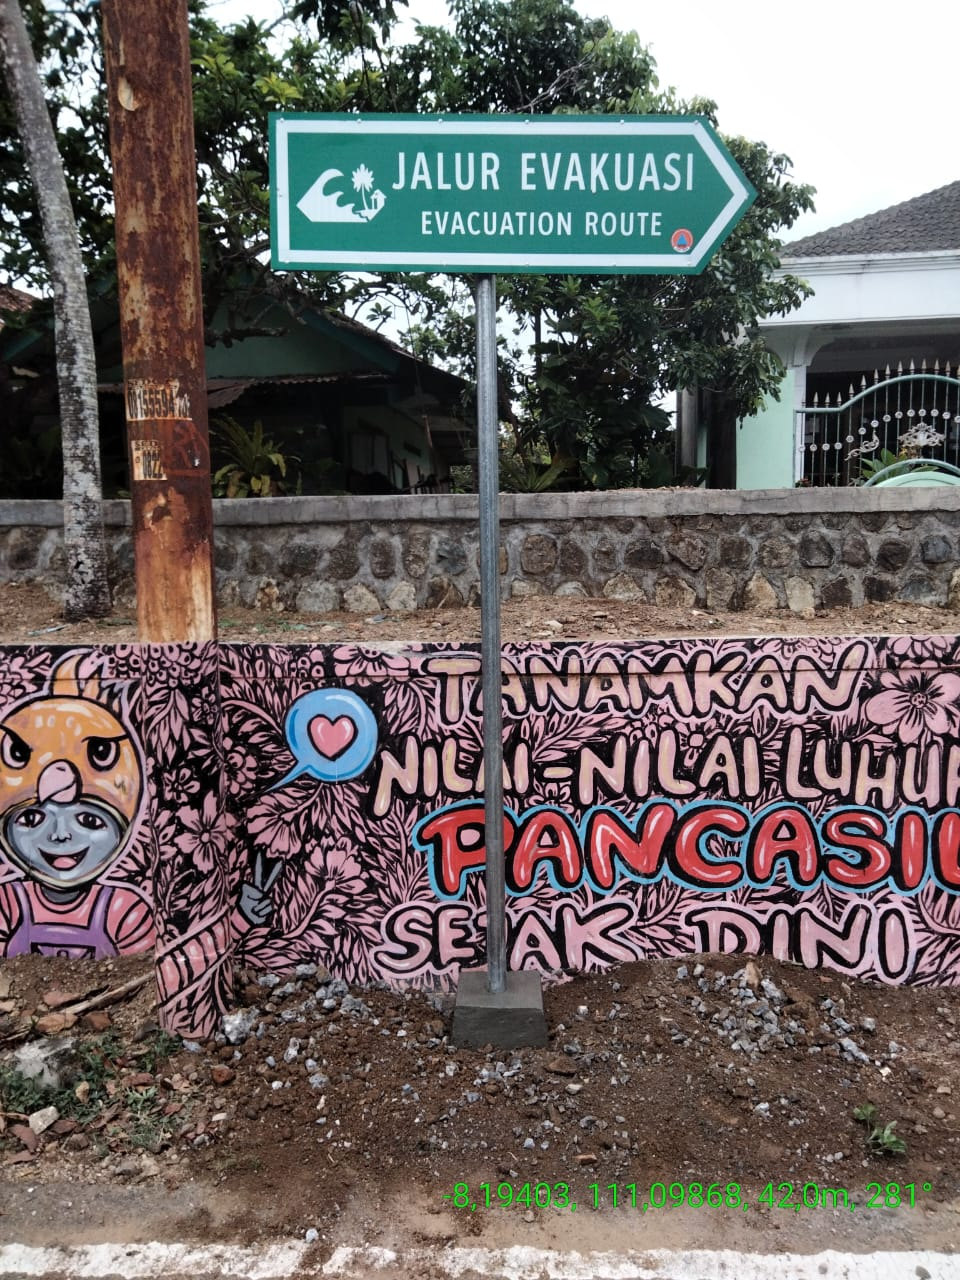 JALUR EVAKUASI
EVACUATION ROUTE
TANAMKAN
NILAI-NILAI LUHUR
PANCASIL
SEJAK DINI
-8,19403, 111,09868, 42,0m, 281°